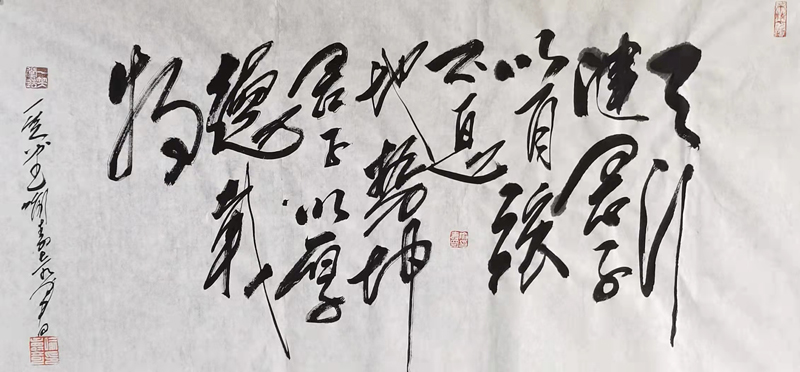 天行
健君子
以自強
不息
地勢坤
君子以厚
德載
物